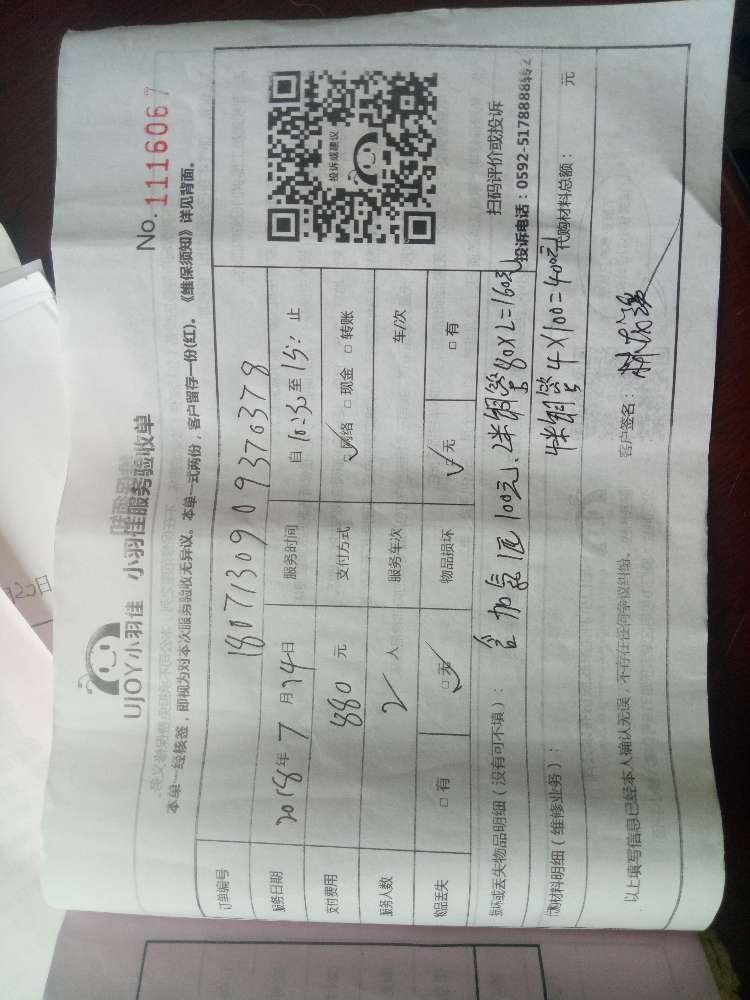 UJOY小羽佳 小羽佳服务验收单
No. 1116067
本单一经核签，即视为对本次服务验收无异议。本单一式两份，客户留存一份(红)。《维保须知》详见背面。
订单编号 180713090 9376378
服务日期 2018年7月14日 服务时间 自 10:30 至 15: 止
支付费用 880 元 支付方式 ☑网络 □现金 □转账
服务人数 2 人 服务车次 车/次
物品丢失 □有 ☑无 物品损坏 ☑无 □有
投诉或建议
扫码评价或投诉
投诉电话：0592-5178888转2
损坏或丢失物品明细（没有可不填）：
含加氟压100元、2米铜管80X2=160元
代购材料明细（维修业务）：
4米铜管4X100=400元
代购材料总额： 元
以上填写信息已经本人确认无误，不存在任何争议纠纷。
客户签名：
日